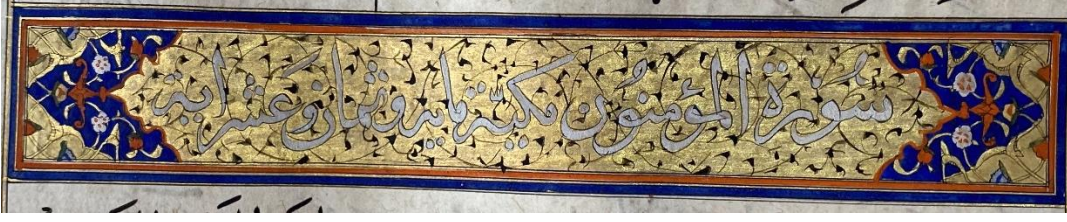 سُورَة المؤمنُون مكيّة مايه وثمان وعشر ايه